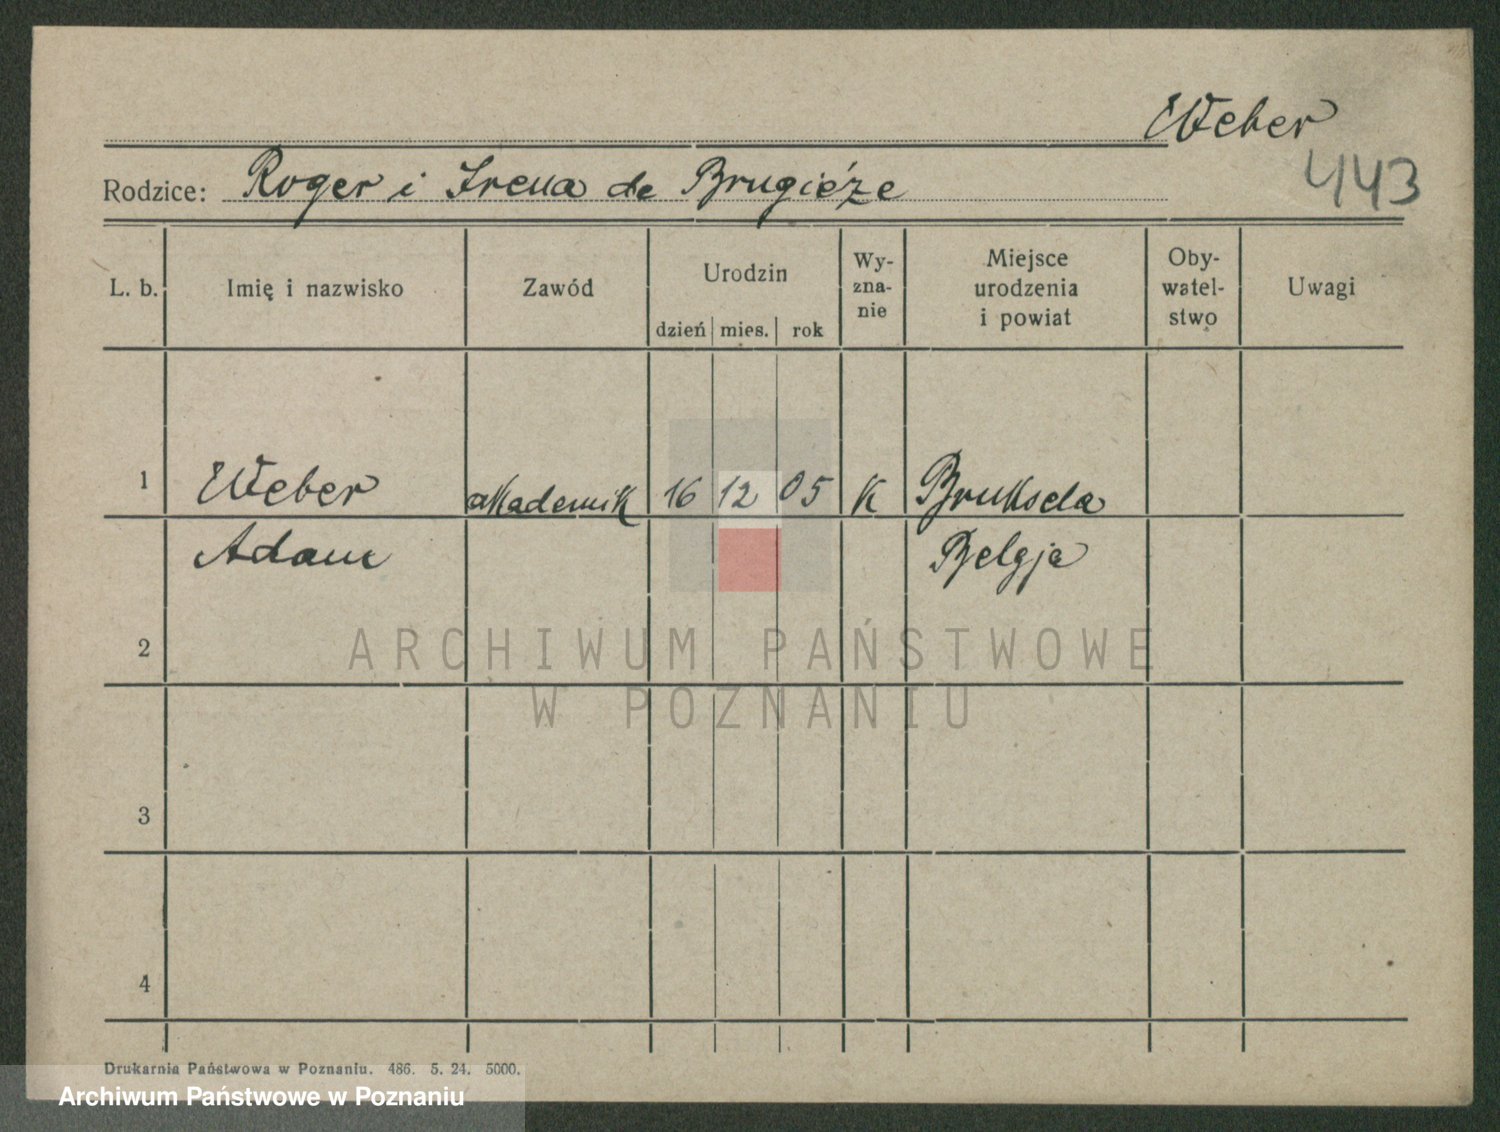 Weber
443
Rodzice: Roger i Irena de Brugiéże
L. b. Imię i nazwisko Zawód Urodzin dzień mies. rok Wy-zna-nie Miejsce urodzenia i powiat Oby-watel-stwo Uwagi
1 Weber akademik 16 12 05 K Bruksela
Adam Belgja
2
ARCHIWUM PAŃSTWOWE
W POZNANIU
3
4
Drukarnia Państwowa w Poznaniu. 486. 5. 24. 5000.
Archiwum Państwowe w Poznaniu